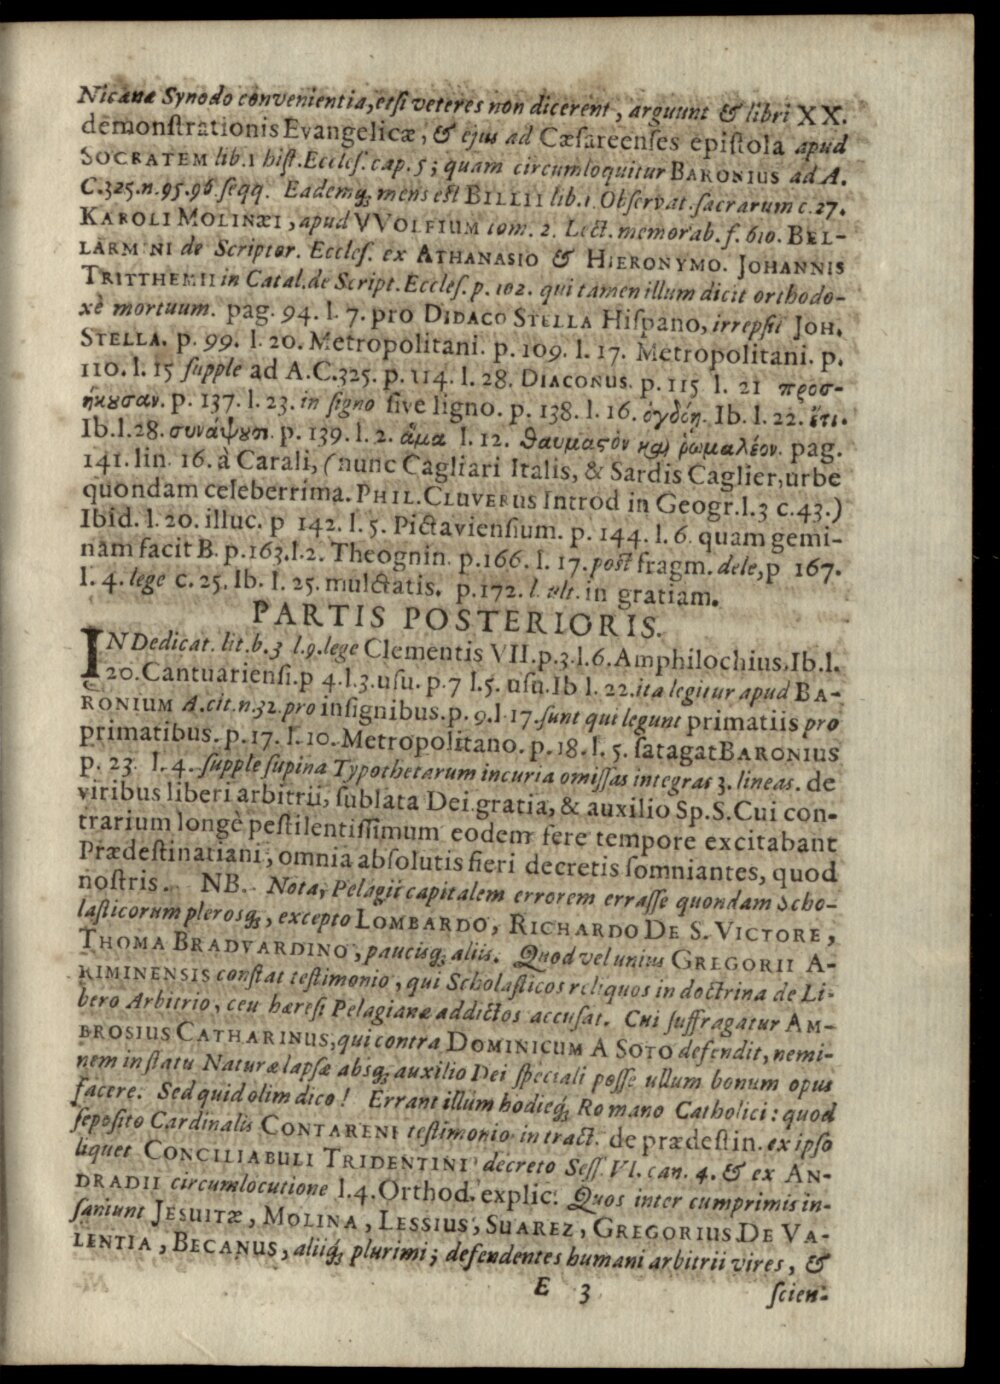 Nicænæ Synodo convenientia, etsi veteres non dicerent, arguunt & libri XX.
demonstrationis Evangelicæ, & ejus ad Cæsareenses epistola apud
SOCRATEM lib. 1 hist. Eccles. cap. 5; quam circumloquitur BARONIUS ad A.
C. 325. n. 95. 96. seqq. Eademq; mens est BILLII lib. 1. Observat. sacrarum c. 27.
KAROLI MOLINÆI, apud VVOLFIUM tom. 2. Lect. memorab. f. 610. BEL-
LARMINI de Scriptor. Eccles. ex ATHANASIO & HIERONYMO. JOHANNIS
TRITTHEMII in Catal. de Script. Eccles. p. 102. qui tamen illum dicit orthodo-
xè mortuum. pag. 94. l. 7. pro DIDACO STELLA Hispano, irrepsit JOH.
STELLA. p. 99. l. 20. Metropolitani. p. 109. l. 17. Metropolitani. p.
110. l. 15 supple ad A.C. 325. p. 114. l. 28. DIACONUS. p. 115 l. 21 προσ-
ήκουσαν. p. 137. l. 23. in signo sive ligno. p. 138. l. 16. ὀγδόη. Ib. l. 22. ἔτι.
Ib. l. 28. συνάψουσι. p. 139. l. 2. ἅμα l. 12. θαυμαστὸν καὶ ῥωμαλέον. pag.
141. lin. 16. à Carali, (nunc Cagliari Italis, & Sardis Caglier, urbe
quondam celeberrima. PHIL. CLUVERUS Introd in Geogr. l. 3 c. 43.)
Ibid. l. 20. illuc. p 142. l. 5. Pictaviensium. p. 144. l. 6. quam gemi-
nam facit B. p. 163. l. 2. Theognin. p. 166. l. 17. post fragm. dele, p 167.
l. 4. lege c. 25. Ib. l. 25. mulctatis. p. 172. l. ult. in gratiam.
PARTIS POSTERIORIS.
IN Dedicat. lit. b. 3 l. 9. lege Clementis VII. p. 3. l. 6. Amphilochius. Ib. l.
20. Cantuariensi. p 4. l. 3. usu. p. 7 l. 5. usu. Ib l. 22. ita legitur apud BA-
RONIUM A. cit. n. 32. pro insignibus. p. 9. l 17. sunt qui legunt primatiis pro
primatibus. p. 17. l. 10. Metropolitano. p. 18. l. 5. satagat BARONIUS
p. 23. l. 4. supple supina Typothetarum incuria omissas integras 3. lineas. de
viribus liberi arbitrii, sublata Dei gratia, & auxilio Sp. S. Cui con-
trarium longè pestilentissimum eodem fere tempore excitabant
Prædestinatiani, omnia absolutis fieri decretis somniantes, quod
nostris. NB. Nota, Pelagii capitalem errorem errasse quondam Scho-
lasticorum plerosq;, excepto LOMBARDO, RICHARDO DE S. VICTORE,
THOMA BRADVARDINO, paucisq; aliis. Quod vel unius GREGORII A-
RIMINENSIS constat testimonio, qui Scholasticos reliquos in doctrina de Li-
bero Arbitrio, ceu hæresi Pelagianæ addictos accusat. Cui suffragatur AM-
BROSIUS CATHARINUS, qui contra DOMINICUM A SOTO defendit, nemi-
nem in statu Naturæ lapsæ absq; auxilio Dei speciali posse ullum bonum opus
facere. Sed quid olim dico! Errant illum hodieq; Romano Catholici: quod
seposito Cardinalis CONTARENI testimonio in tract. de prædestin. ex ipso
liquet CONCILIABULI TRIDENTINI decreto Sess. VI. can. 4. & ex AN-
DRADII circumlocutione l. 4. Orthod. explic. Quos inter cumprimis in-
saniunt JESUITÆ, MOLINA, LESSIUS, SUAREZ, GREGORIUS DE VA-
LENTIA, BECANUS, aliiq; plurimi; defendentes humani arbitrii vires, &
E 3
scien-